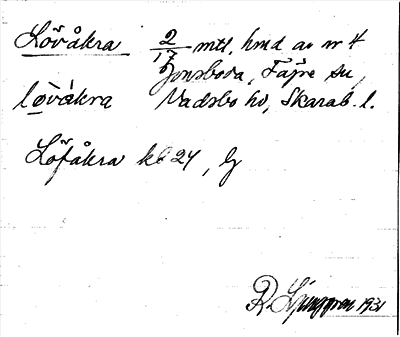 Lövåkra 2/17 mtl, hmd av nr 4
Jonsboda, Fägre sn,
lø̀vàkra Vadsbo hd, Skarab. l.
Löfåkra kb 24, G
R. Ljunggren 1931